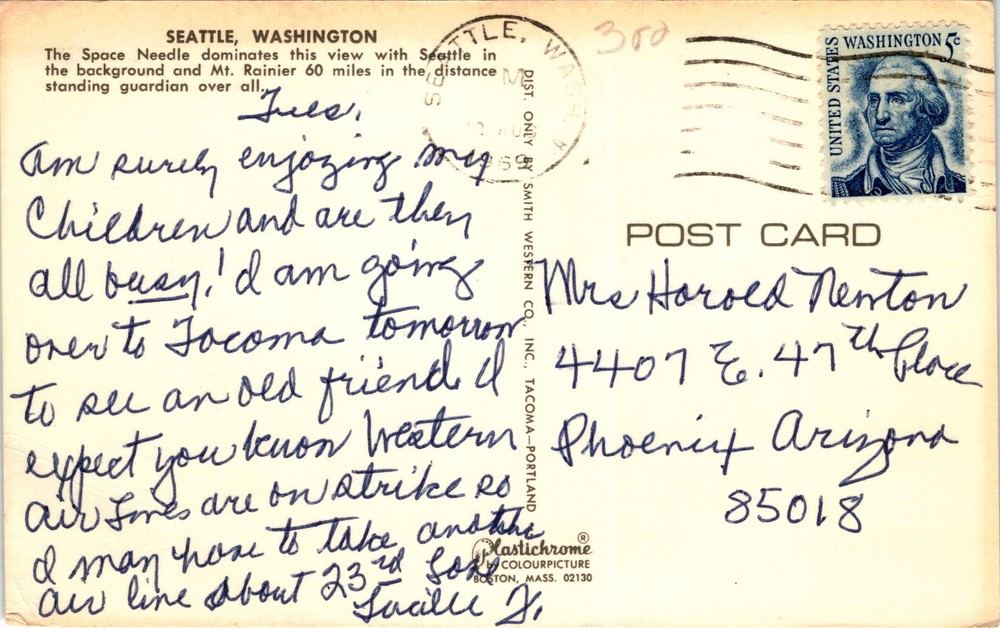 SEATTLE, WASHINGTON
The Space Needle dominates this view with Seattle in
the background and Mt. Rainier 60 miles in the distance
standing guardian over all.
Tues.
Am surely enjoying my
Children and are they
all busy! I am going
over to Tacoma tomorrow
to see an old friend. I
expect you know Western
Air Lines are on strike so
I may have to take another
air line about 23rd Love
Lucille F.
DIST. ONLY BY SMITH WESTERN CO., INC., TACOMA—PORTLAND
Plastichrome®
by COLOURPICTURE
BOSTON, MASS. 02130
300
SEATTLE, WASH
M
UNITED STATES
WASHINGTON 5c
POST CARD
Mrs Harold Newton
4407 E. 47th Place
Phoenix Arizona
85018